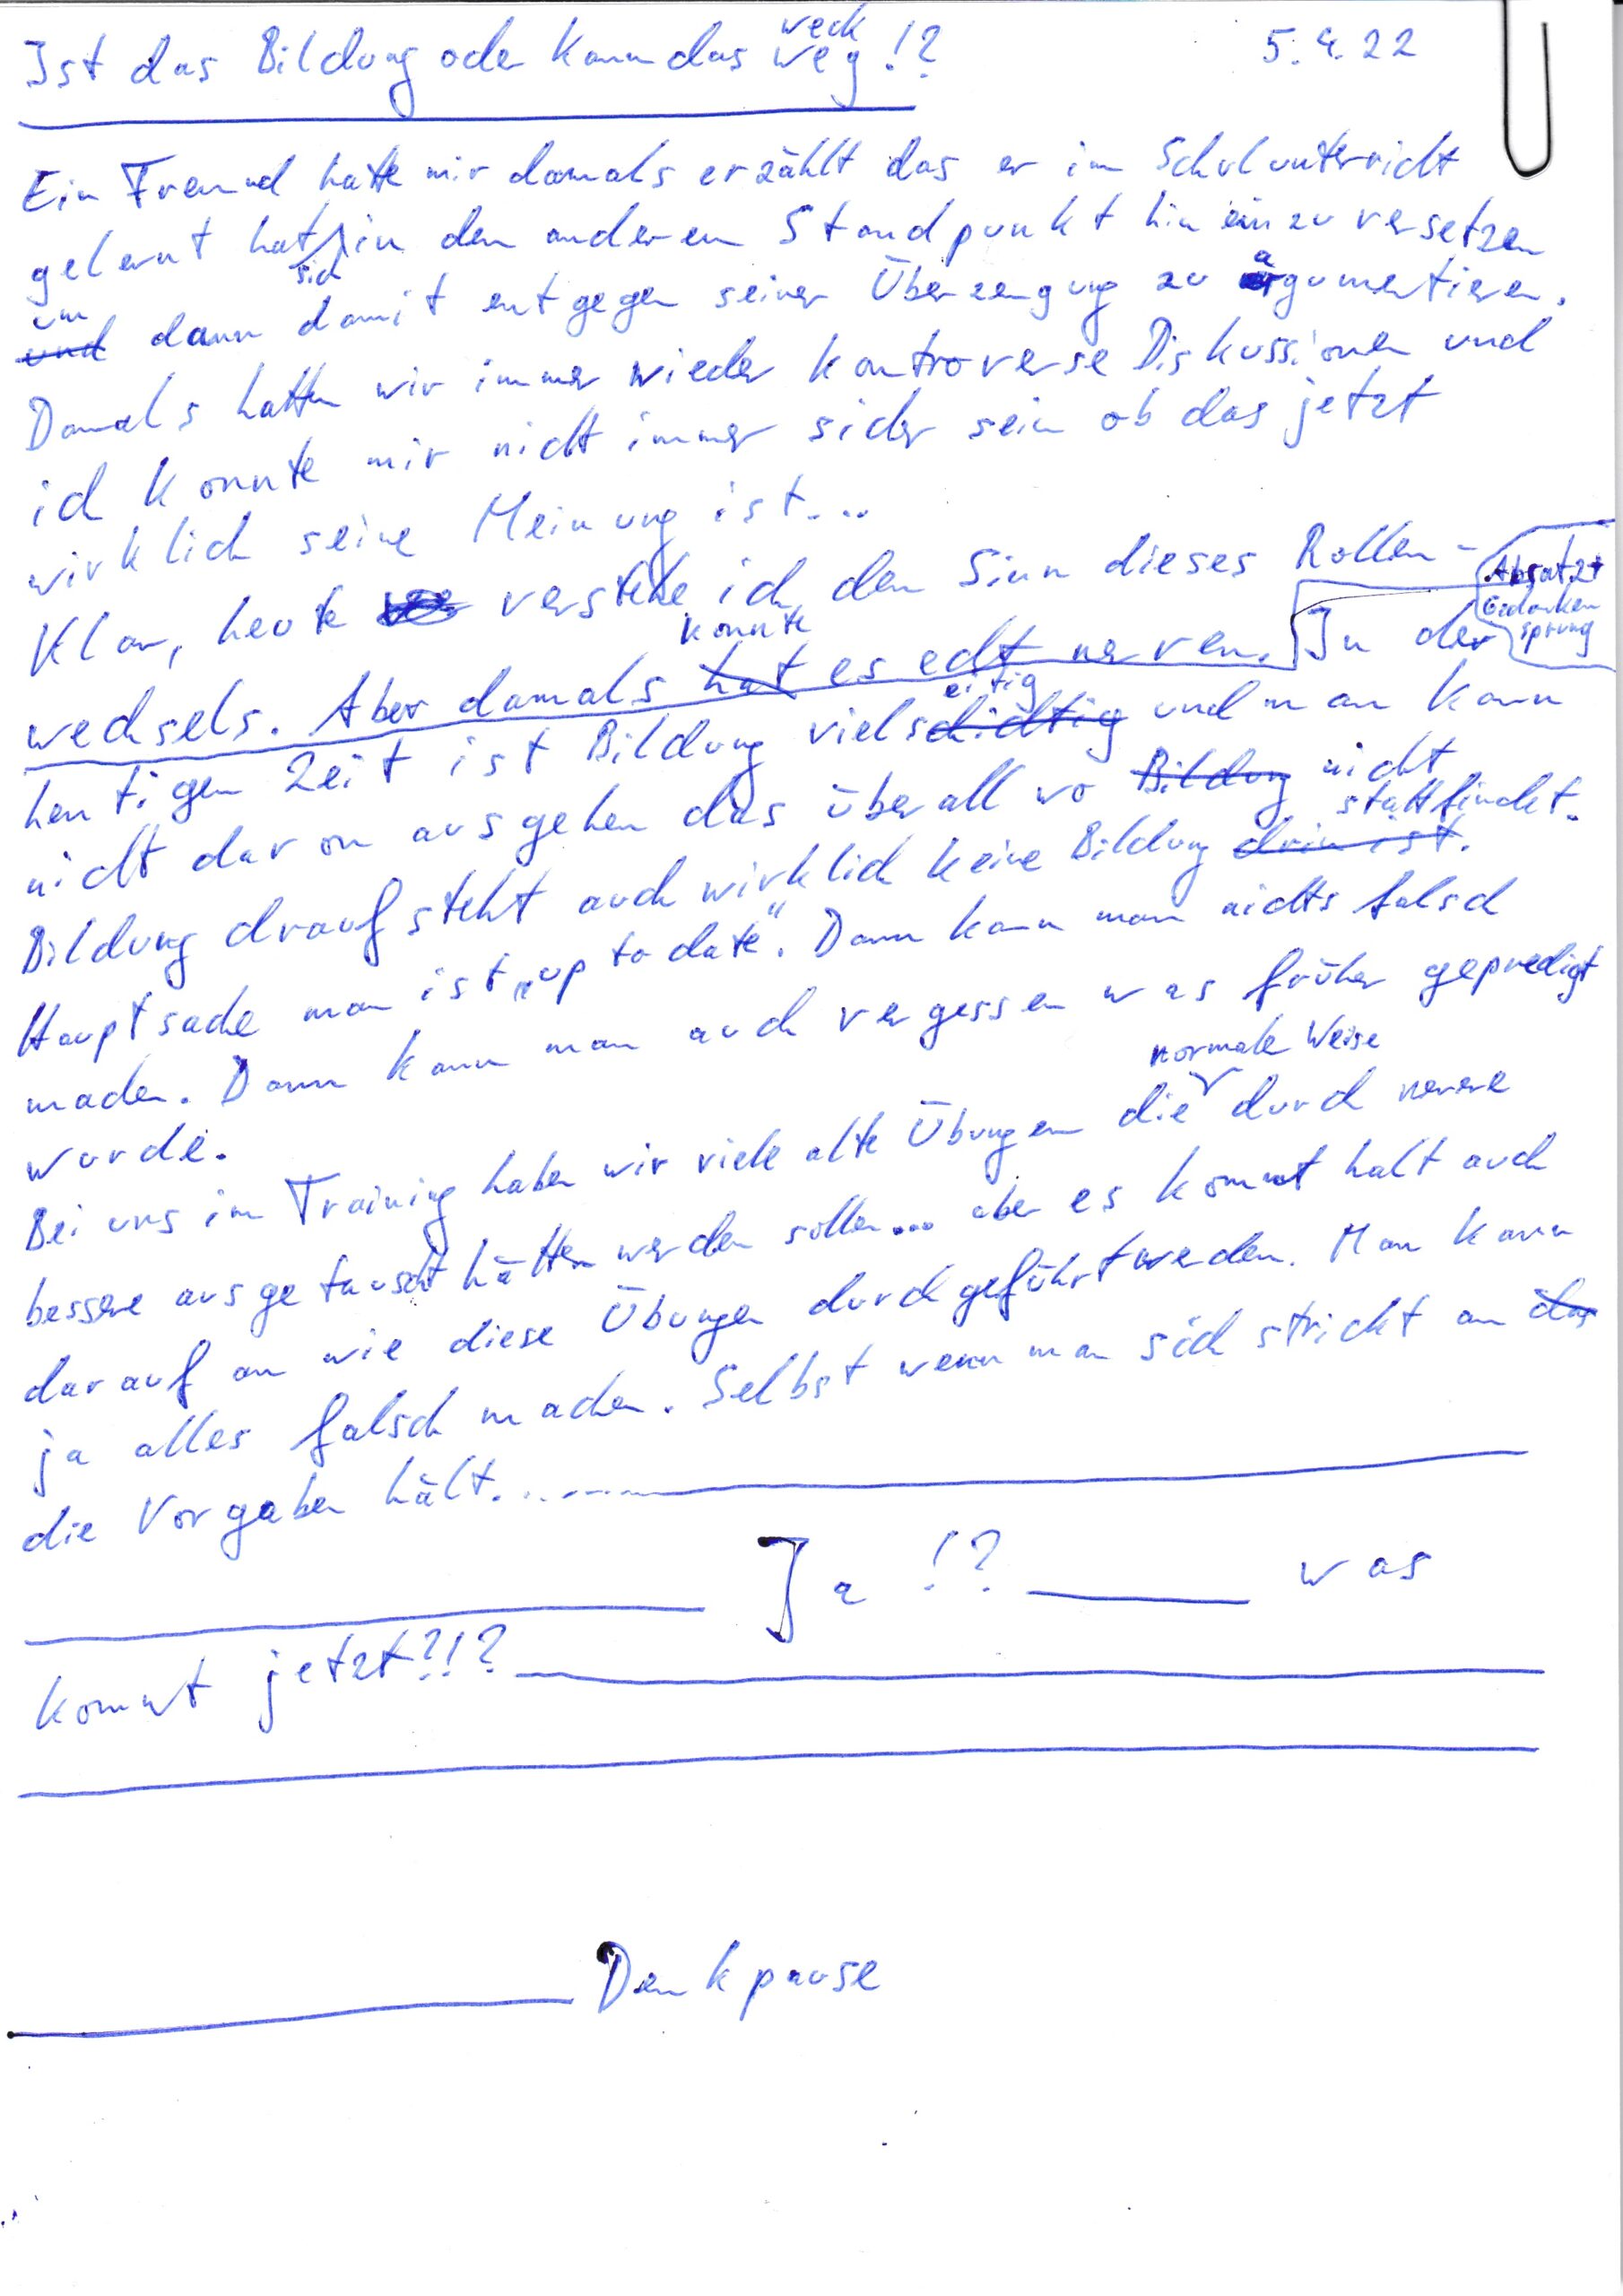 weck
Ist das Bildung oder kann das weg!? 5.4.22
Ein Freund hatte mir damals erzählt das er im Schulunterricht
gelernt hat sich in den anderen Standpunkt hinein zu versetzen
um
und dann damit entgegen seiner Überzeugung zu argumentieren.
Damals hatten wir immer wieder kontroverse Diskussionen und
ich konnte mir nicht immer sicher sein ob das jetzt
wirklich seine Meinung ist...
Klar, heute verstehe ich den Sinn dieses Rollen-
Absatz +
Gedanken
sprung
konnte
wechsels. Aber damals hat es echt nerven. In der
eitig
heutigen Zeit ist Bildung vielschichtig und man kann
nicht davon ausgehen das überall wo Bildung nicht
stattfindet.
Bildung drauf steht auch wirklich keine Bildung drin ist.
Hauptsache man ist „up to date". Dann kann man nichts falsch
machen. Dann kann man auch vergessen was früher gepredigt
wurde.
normale Weise
Bei uns im Training haben wir viele alte Übungen die durch neuere
bessere ausgetauscht hätten werden sollen... aber es kommt halt auch
darauf an wie diese Übungen durchgeführt werden. Man kann
ja alles falsch machen. Selbst wenn man sich strickt an das
die Vorgaben hält.......
Ja !? was
kommt jetzt?!?
Denkpause